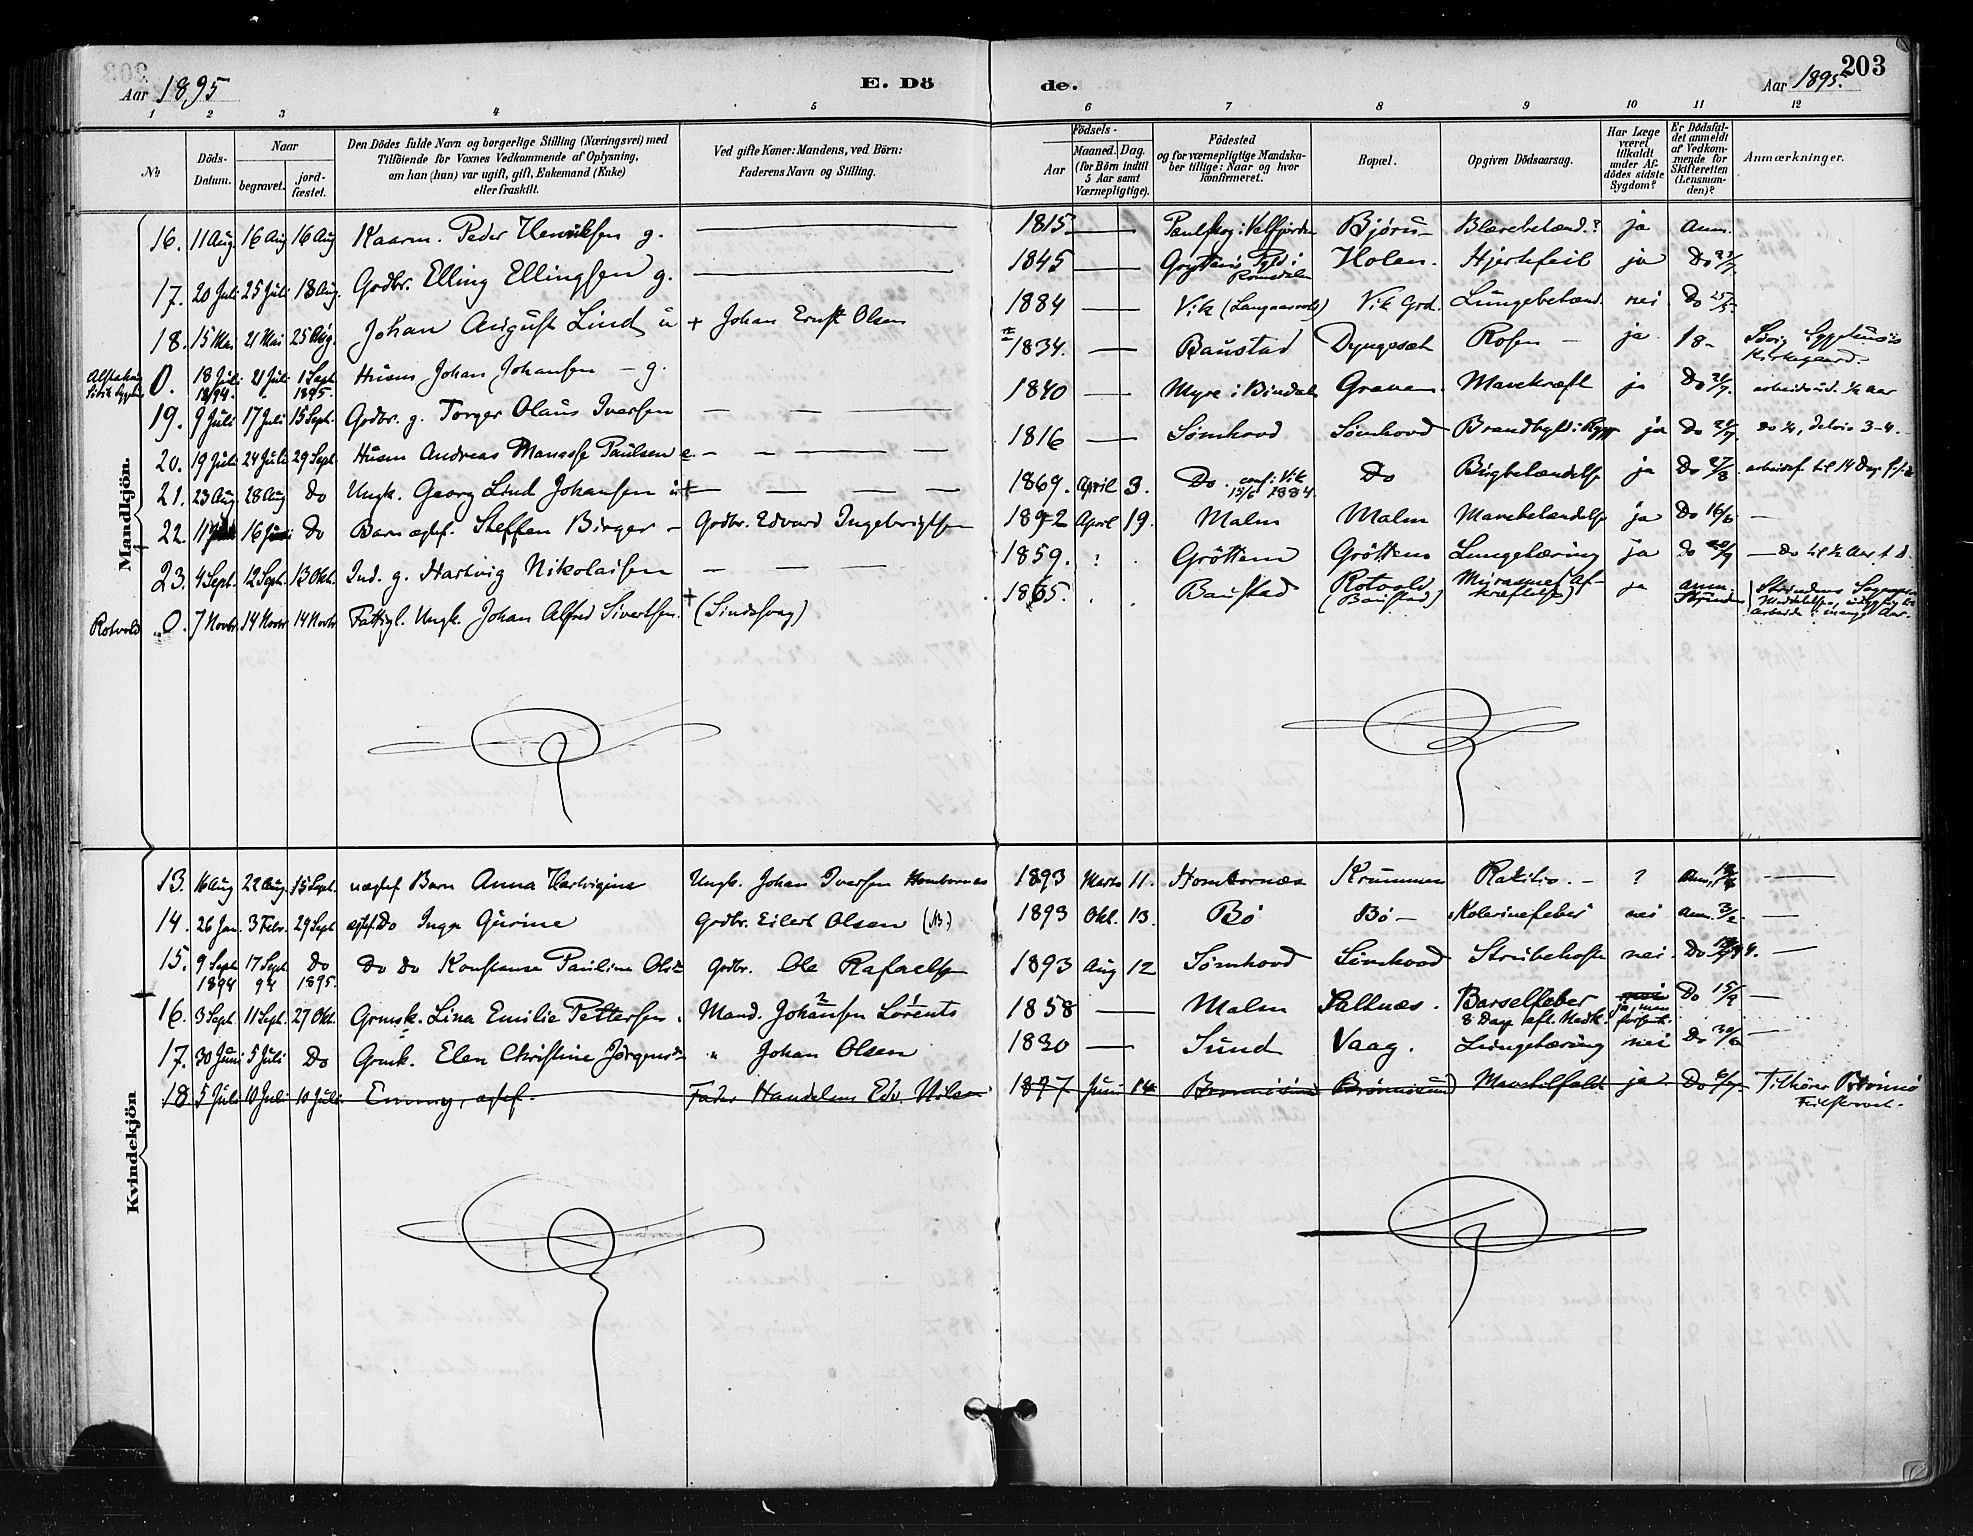 203
Aar 1895
E. Dö
de.
Aar 1895.
1 2 3 4 5 6 7 8 9 10 11 12
No
Döds-Datum.
Naar
begravet.
jord-fæstet.
Den Dödes fulde Navn og borgerlige Stilling (Næringsvei) med
Tilföiende for Voxnes Vedkommende af Oplysning,
om han (hun) var ugift, gift, Enkemand (Enke)
eller fraskilt.
Ved gifte Koner: Mandens, ved Börn:
Faderens Navn og Stilling.
Födsels-
Aar
Maaned. Dag.
(for Börn indtil
5 Aar samt
Værnepligtige).
Födested
og for værnepligtige Mandska-
ber tillige: Naar og hvor
konfirmeret.
Bopæl.
Opgiven Dödsaarsag.
Har Læge
været
tilkaldt
under Af-
dödes sidste
Sygdom?
Er Dödsfal-
det anmeldt
af Vedkom-
mende for
Skifteretten
(Lensman-
den)?
Anmærkninger.
Mandkjön.
16. 11 Aug 16 Aug 16 Aug Kaarm. Peder Henriksen g. 1815 Paulskog i Velfjorden Bjøru Blærebetænd.? ja Anm.
17. 20 Juli 25 Juli 18 Aug. Grdbr. Elling Ellingsen g. 1845 Romsdalen Holen. Hjertefeil ja Do
18. 15 Mai 21 Mai 25 Aug. Johan August Lind u + Johan Ernst Olsen 1884 Vik Vik Grd. Lungebetænd. nei Do 25/5
0. 18 Juli 21 Juli 1 Sept. 1895. Husm Johan Johansen g. 1834. Baustad Dyngesæt Rosen ja 18 Kirkegaard.
19. 9 Juli 17 Juli 15 Sept. Grdbr. g. Torger Olaus Iversen 1840 Myre i Bindal Graven Mavekræft ja Do arbeidsud. ½ aar
20. 19 Juli 24 Juli 29 Sept. Husm Andreas Manasse Paulsen e 1816 Sømhovd Sømhovd Brandbyld i Rygg ja Do delvis 3-4.
21. 23 Aug 28 Aug Do Ungk. Georg Lind Johansen u + 1869. April 3. Do. conf: Vik 15/6 1884. Do Bugbetændelse ja Do 27/8 til 14 Dag f. d.
22. 11 Juni 16 Juni Do Barn ægtef. Steffen Birger Grdbr. Edvard Ingebrigtsen 1892 April 19. Malm Malm Mavebetændelse ja Do 16/6
23. 4 Sept. 12 Sept. 13 Okt. Ind. g. Hartvig Nikolaisen 1859. ? Gröttem Gröttem Lungetæring ja Do Do til ½ Aar f. d.
Rotvold 0. 7 Novbr 14 Novbr 14 Novbr Fattigl. Ungk. Johan Alfred Sivertsen. + (Sindssvag) 1865. Baustad Rotvold (Baustad) ja anm. arbeide i mange Aar.
Kvindekjön
13. 16 Aug 22 Aug. 15 Sept. uægtef Barn Anna Hartvigine Ungk. Johan Iversen Hombornes 1893 Marts 11. Hombornæs Krummen Rakitis. ? Anm.
14. 26 Jan. 3 Febr. 29 Sept ægtef. Do Inga Gurine Grdbr. Eilert Olsen 1893 Okt. 13. Bö Bö Kolerinefeber nei Anm. 3/2
15. 9 Sept. 1894 17 Sept. 94 Do 1895. Do Do Konstanse Pauline Olsdr Grdbr. Ole Rafaelsen 1893 Aug 12 Sømhovd Sømhovd Strubehoste nei. Do
16. 3 Sept. 11 Sept. 27 Okt. Grmsk. Lina Emilie Pettersen. Mand. Johansen Lorents 1858 Malm Saltnæs. Barselfeber 8 Dage eft. Nedk. nei ja, men Do 15/9
17. 30 Juni 5 Juli Do Grmk. Elen Christine Jørgensdr " Johan Olsen 1830 Sund Vaag. Lungetæring nei Do 30/6
18 5 Juli 10 Juli 10 Juli Emmy, ægtef. Fader Handelsm Edv. Nilsen 1877 Juni 14 Brønnøsund Brønnøsund Mavetilfald ja Do Tilhører Brønnø
Feilskrevet.